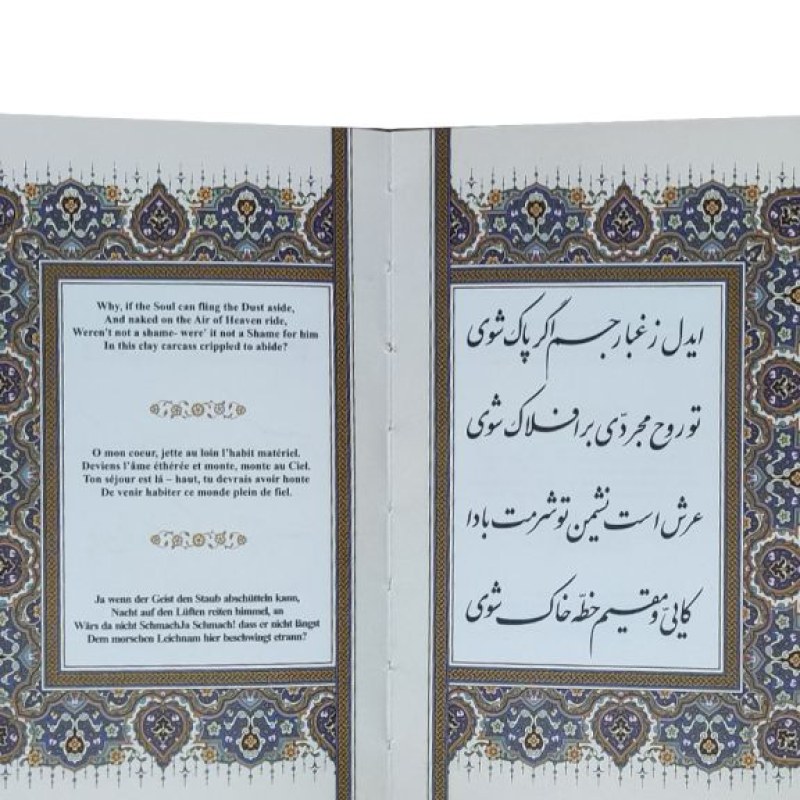 Why, if the Soul can fling the Dust aside,
And naked on the Air of Heaven ride,
Weren't not a shame- were' it not a Shame for him
In this clay carcass crippled to abide?
O mon coeur, jette au loin l'habit matériel.
Deviens l'âme éthérée et monte, monte au Ciel.
Ton séjour est lá – haut, tu devrais avoir honte
De venir habiter ce monde plein de fiel.
Ja wenn der Geist den Staub abschütteln kann,
Nacht auf den Lüften reiten himmel, an
Wärs da nicht SchmachJa Schmach! dass er nicht längst
Dem morschen Leichnam hier beschwingt etrann?
ایدل ز غبار جسم اگر پاک شوی
تو روح مجردی بر افلاک شوی
عرش است نشیمن تو شرمت بادا
کایی و مقیم خطّه خاک شوی